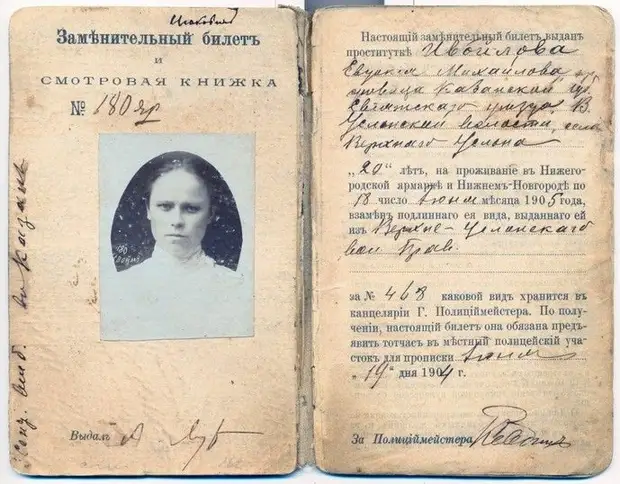 Замѣнительный билетъ
и
СМОТРОВАЯ КНИЖКА
№ 180 яр
Выдалъ
Настоящій замѣнительный билетъ выданъ
проституткѣ Ивойлова
Евдокія Михайлова
Казанской губ
Свіяжскаго уѣзда, В.
Услонской волости, села
Верхняго Услона
„20“ лѣтъ, на проживаніе въ Нижего-
родской ярмаркѣ и Нижнемъ-Новгородѣ по
18 число Іюня мѣсяца 1905 года,
взамѣнъ подлиннаго ея вида, выданнаго ей
изъ Верхне-Услонскаго
вол Прав.
за № 468 каковой видъ хранится въ
канцеляріи Г. Полиціймейстера. По полу-
ченіи, настоящій билетъ она обязана предъ-
явить тотчасъ въ мѣстный полицейскій уча-
стокъ для прописки Іюня
„19“ дня 1904 г.
За Полиціймейстера